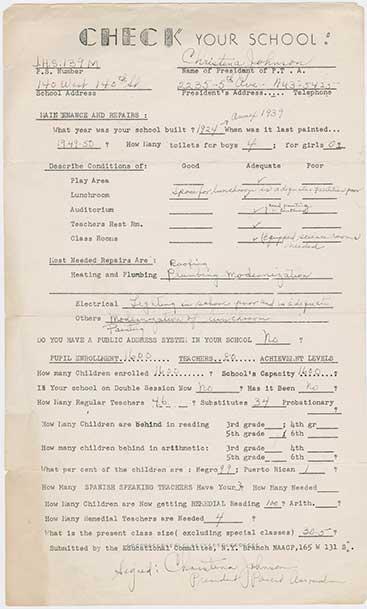 CHECK YOUR SCHOOL:
J.H.S. 139 M Christina Johnson
P.S. Number Name of President of P.T.A.
140 West 140th St 2235-5th Ave. AU3-5435
School Address President's Address..... Telephone
MAINTENANCE AND REPAIRS:
annex 1939
What year was your school built ? 1924 When was it last painted...
1949-50 ? How Many toilets for boys 4 ; for girls 02
Describe Conditions of: Good Adequate Poor
Play Area
Lunchroom Space for lunchroom is adequate poor
Auditorium ✓ need painting
Teachers Rest Rm. ✓
Class Rooms ✓ Equipped science rooms needed
Most Needed Repairs Are : Roofing
Heating and Plumbing Plumbing Modernization
Electrical Lighting in school poor and is adequate
Others Modernization of lunchroom
Painting
DO YOU HAVE A PUBLIC ADDRESS SYSTEM IN YOUR SCHOOL No ?
PUPIL ENROLLMENT 1600 TEACHERS 80 ACHIEVEMENT LEVELS
How many Children enrolled 1600 ? School's Capacity 1600 ?
Is Your school on Double Session Now No ? Has it Been no ?
How Many Regular Teachers 46 ? Substitutes 34 Probationary ?
How Many Children are behind in reading 3rd grade ; 4th gr
5th grade ; 6th
How many children behind in arithmetic: 3rd grade ; 4th grade
5th grade ; 6th ?
What per cent of the children are : Negro 99 ; Puerto Rican 1 ?
How Many SPANISH SPEAKING TEACHERS Have Your ? How Many Needed
How Many Children are Now getting REMEDIAL Reading 100 ? Arith. ?
How Many Remedial Teachers are Needed 4 ?
What is the present class size( excluding special classes) 30.5 ?
Submitted by the Educational Committee, N.Y. Branch NAACP, 165 W 131 S
Signed: Christina Johnson
President Parent Association